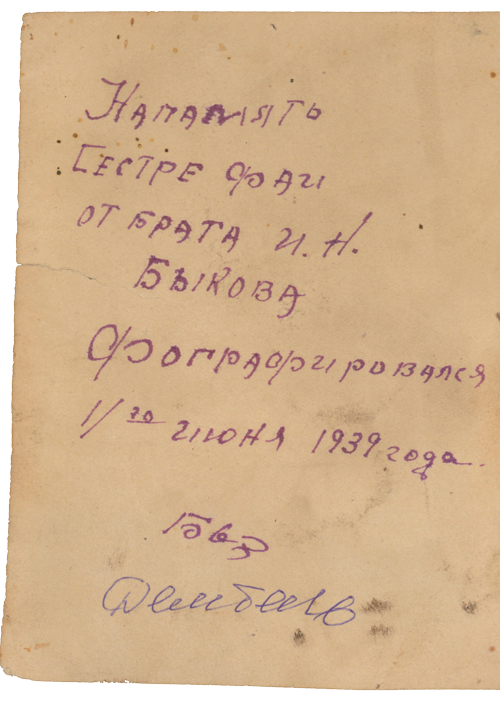 Напамять
Сестре Фаи
от брата И. Н.
Быкова
Фографировался
1/го июня 1939 года.